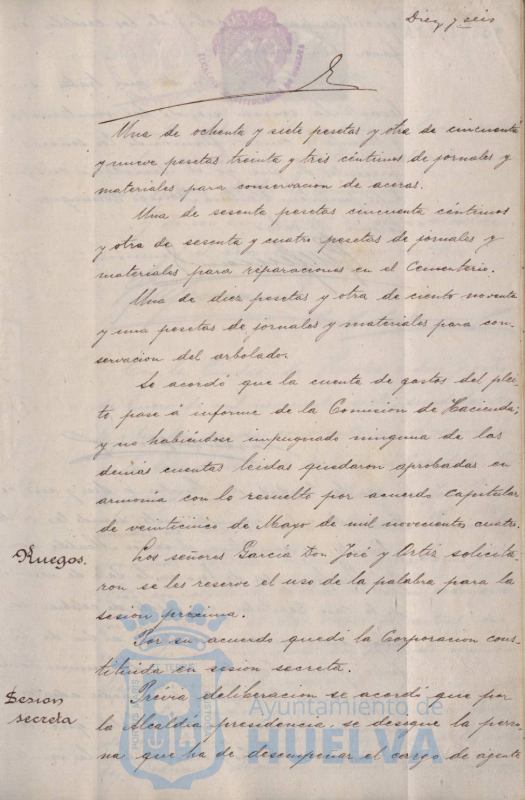 Diez y seis
Una de ochenta y siete pesetas y otra de cincuenta
y nueve pesetas treinta y tres céntimos de jornales y
materiales para conservacion de aceras.
Una de sesenta pesetas cincuenta céntimos
y otra de sesenta y cuatro pesetas de jornales y
materiales para reparaciones en el Cementerio.
Una de diez pesetas y otra de ciento noventa
y una pesetas de jornales y materiales para con-
servacion del arbolado.
Se acordó que la cuenta de gastos del plei-
to, pase á informe de la Comision de Hacienda;
y no habiéndose impugnado ninguna de las
demás cuentas leidas quedaron aprobadas en
armonía con lo resuelto por acuerdo capitular
de veinticinco de Mayo de mil novecientos cuatro.
Ruegos.
Los señores García Don José y Ortiz solicita-
ron se les reserve el uso de la palabra para la
sesion próxima.
Por su acuerdo quedó la Corporacion cons-
tituida en sesion secreta.
Sesion
secreta
Prévia deliberacion se acordó que por
la Alcaldía presidencia, se designe la perso-
na que ha de desempeñar el cargo de agente
Ayuntamiento de
HUELVA